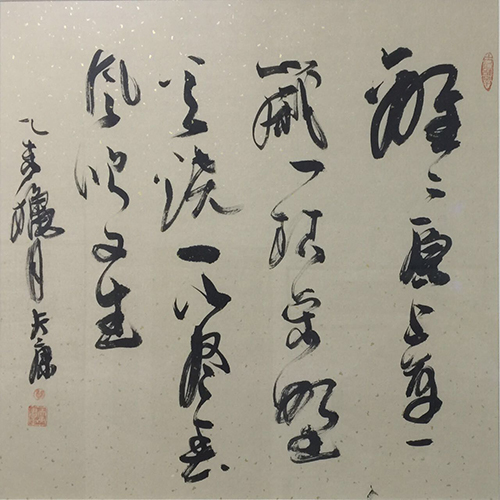 離〻原上草一
歲一枯榮野
火燒不盡春
風吹又生
乙未臘月